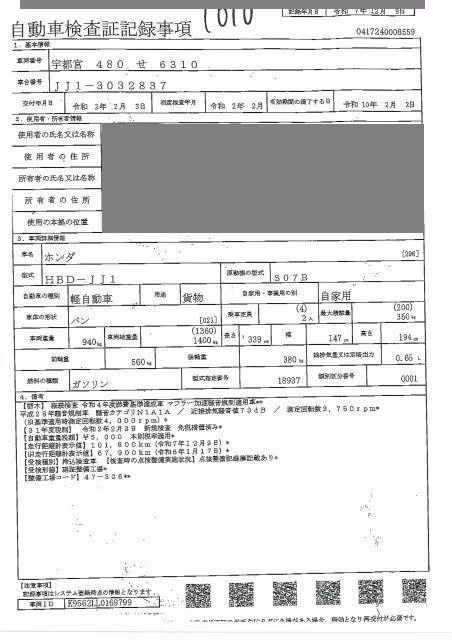 1010
記録年月日 令和 7年12月 9日
自動車検査証記録事項
0417240008559
1. 基本情報
車両番号 宇都宮 480 せ 6310
車台番号 JJ1-3032837
交付年月日 令和 2年 2月 3日 初度検査年月 令和 2年 2月 有効期間の満了する日 令和 10年 2月 2日
2. 使用者・所有者情報
使用者の氏名又は名称
使用者の住所
所有者の氏名又は名称
所有者の住所
使用の本拠の位置
3. 車両詳細情報
車名 ホンダ [296]
型式 HBD-JJ1 原動機の型式 S07B
自動車の種別 軽自動車 用途 貨物 自家用・事業用の別 自家用
車体の形状 バン [021] 乗車定員 (4) 2人 最大積載量 (200) 350kg
車両重量 940kg 車両総重量 (1360) 1400kg 長さ 339cm 幅 147cm 高さ 194cm
前軸重 560kg 後軸重 380kg 総排気量又は定格出力 0.65 L
燃料の種類 ガソリン 型式指定番号 18937 類別区分番号 0001
4. 備考
【栃木】 継続検査 令和4年度燃費基準達成車 マフラー加速騒音規制適用車**
平成28年騒音規制車 騒音カテゴリN1A1A / 近接排気騒音値73dB / 測定回転数3,750rpm*
(自基準適用時測定回転数4,000rpm)*
【31年度税制】 令和2年2月3日 新規検査 免税措置済み*
【自動車重量税額】 ¥5,000 本則税率適用*
【走行距離計表示値】 101,800km (令和7年12月9日)*
【旧走行距離計表示値】 67,900km (令和6年1月17日)*
【受検種別】 持込検査車 【検査時の点検整備実施状況】 点検整備記録簿記載あり*
【受検形態】 認証整備工場*
【整備工場コード】 47-326**
【注意事項】
記録事項はシステム登録時点の情報となります
車両ID K9562LL0169799
無効となり再交付が必要です。